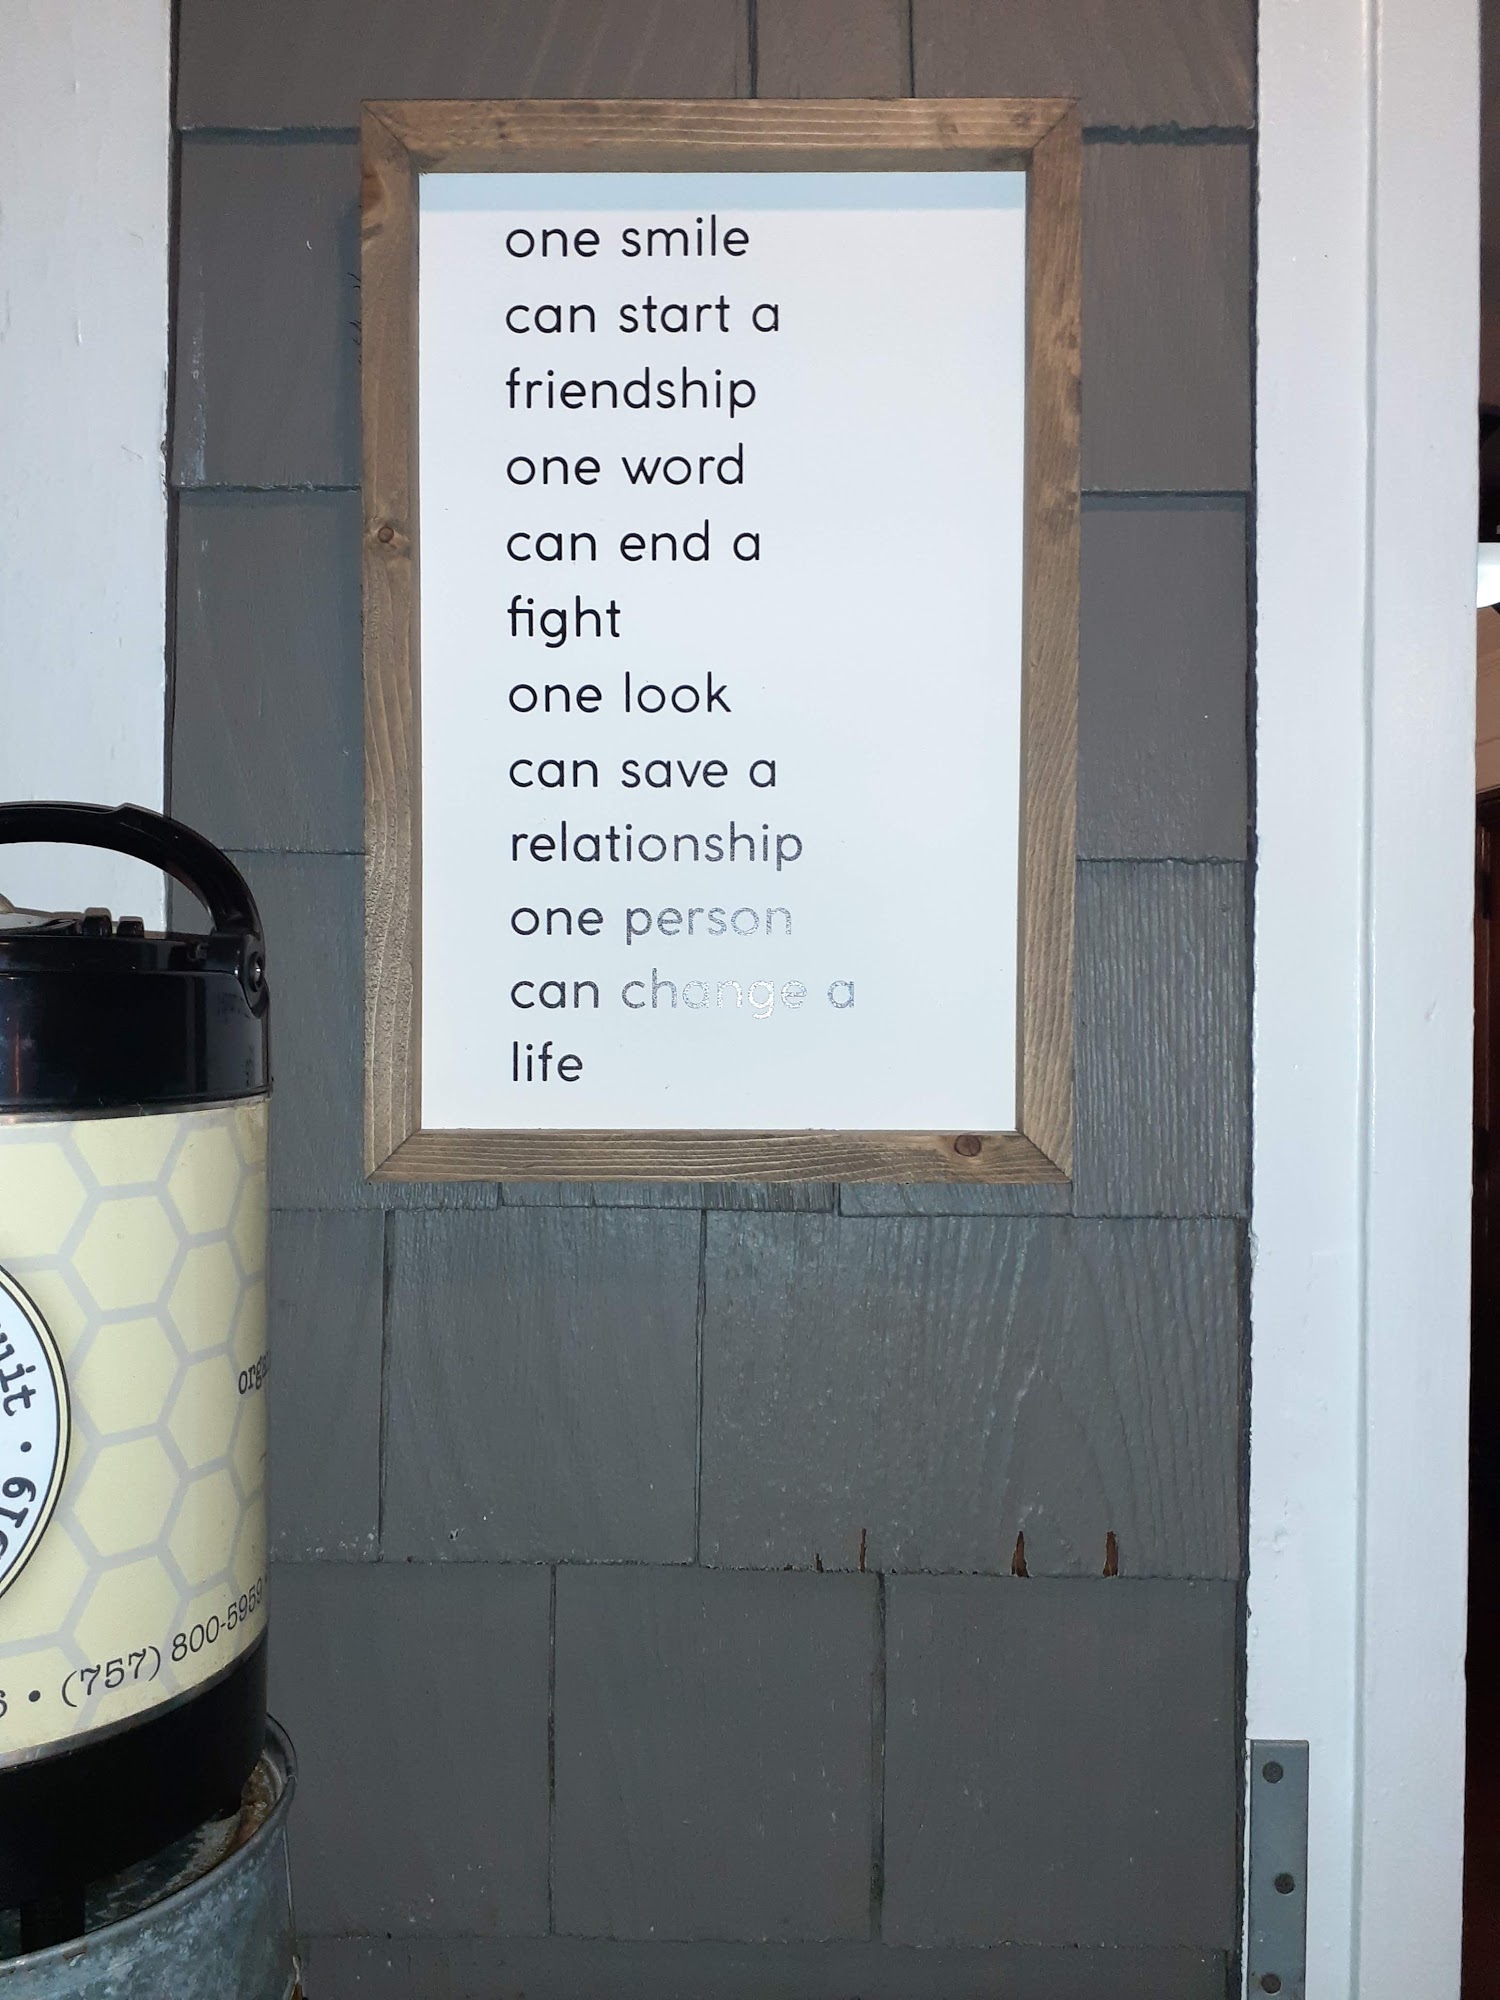 one smile
can start a
friendship
one word
can end a
fight
one look
can save a
relationship
one person
can change a
life
(757) 800-5959